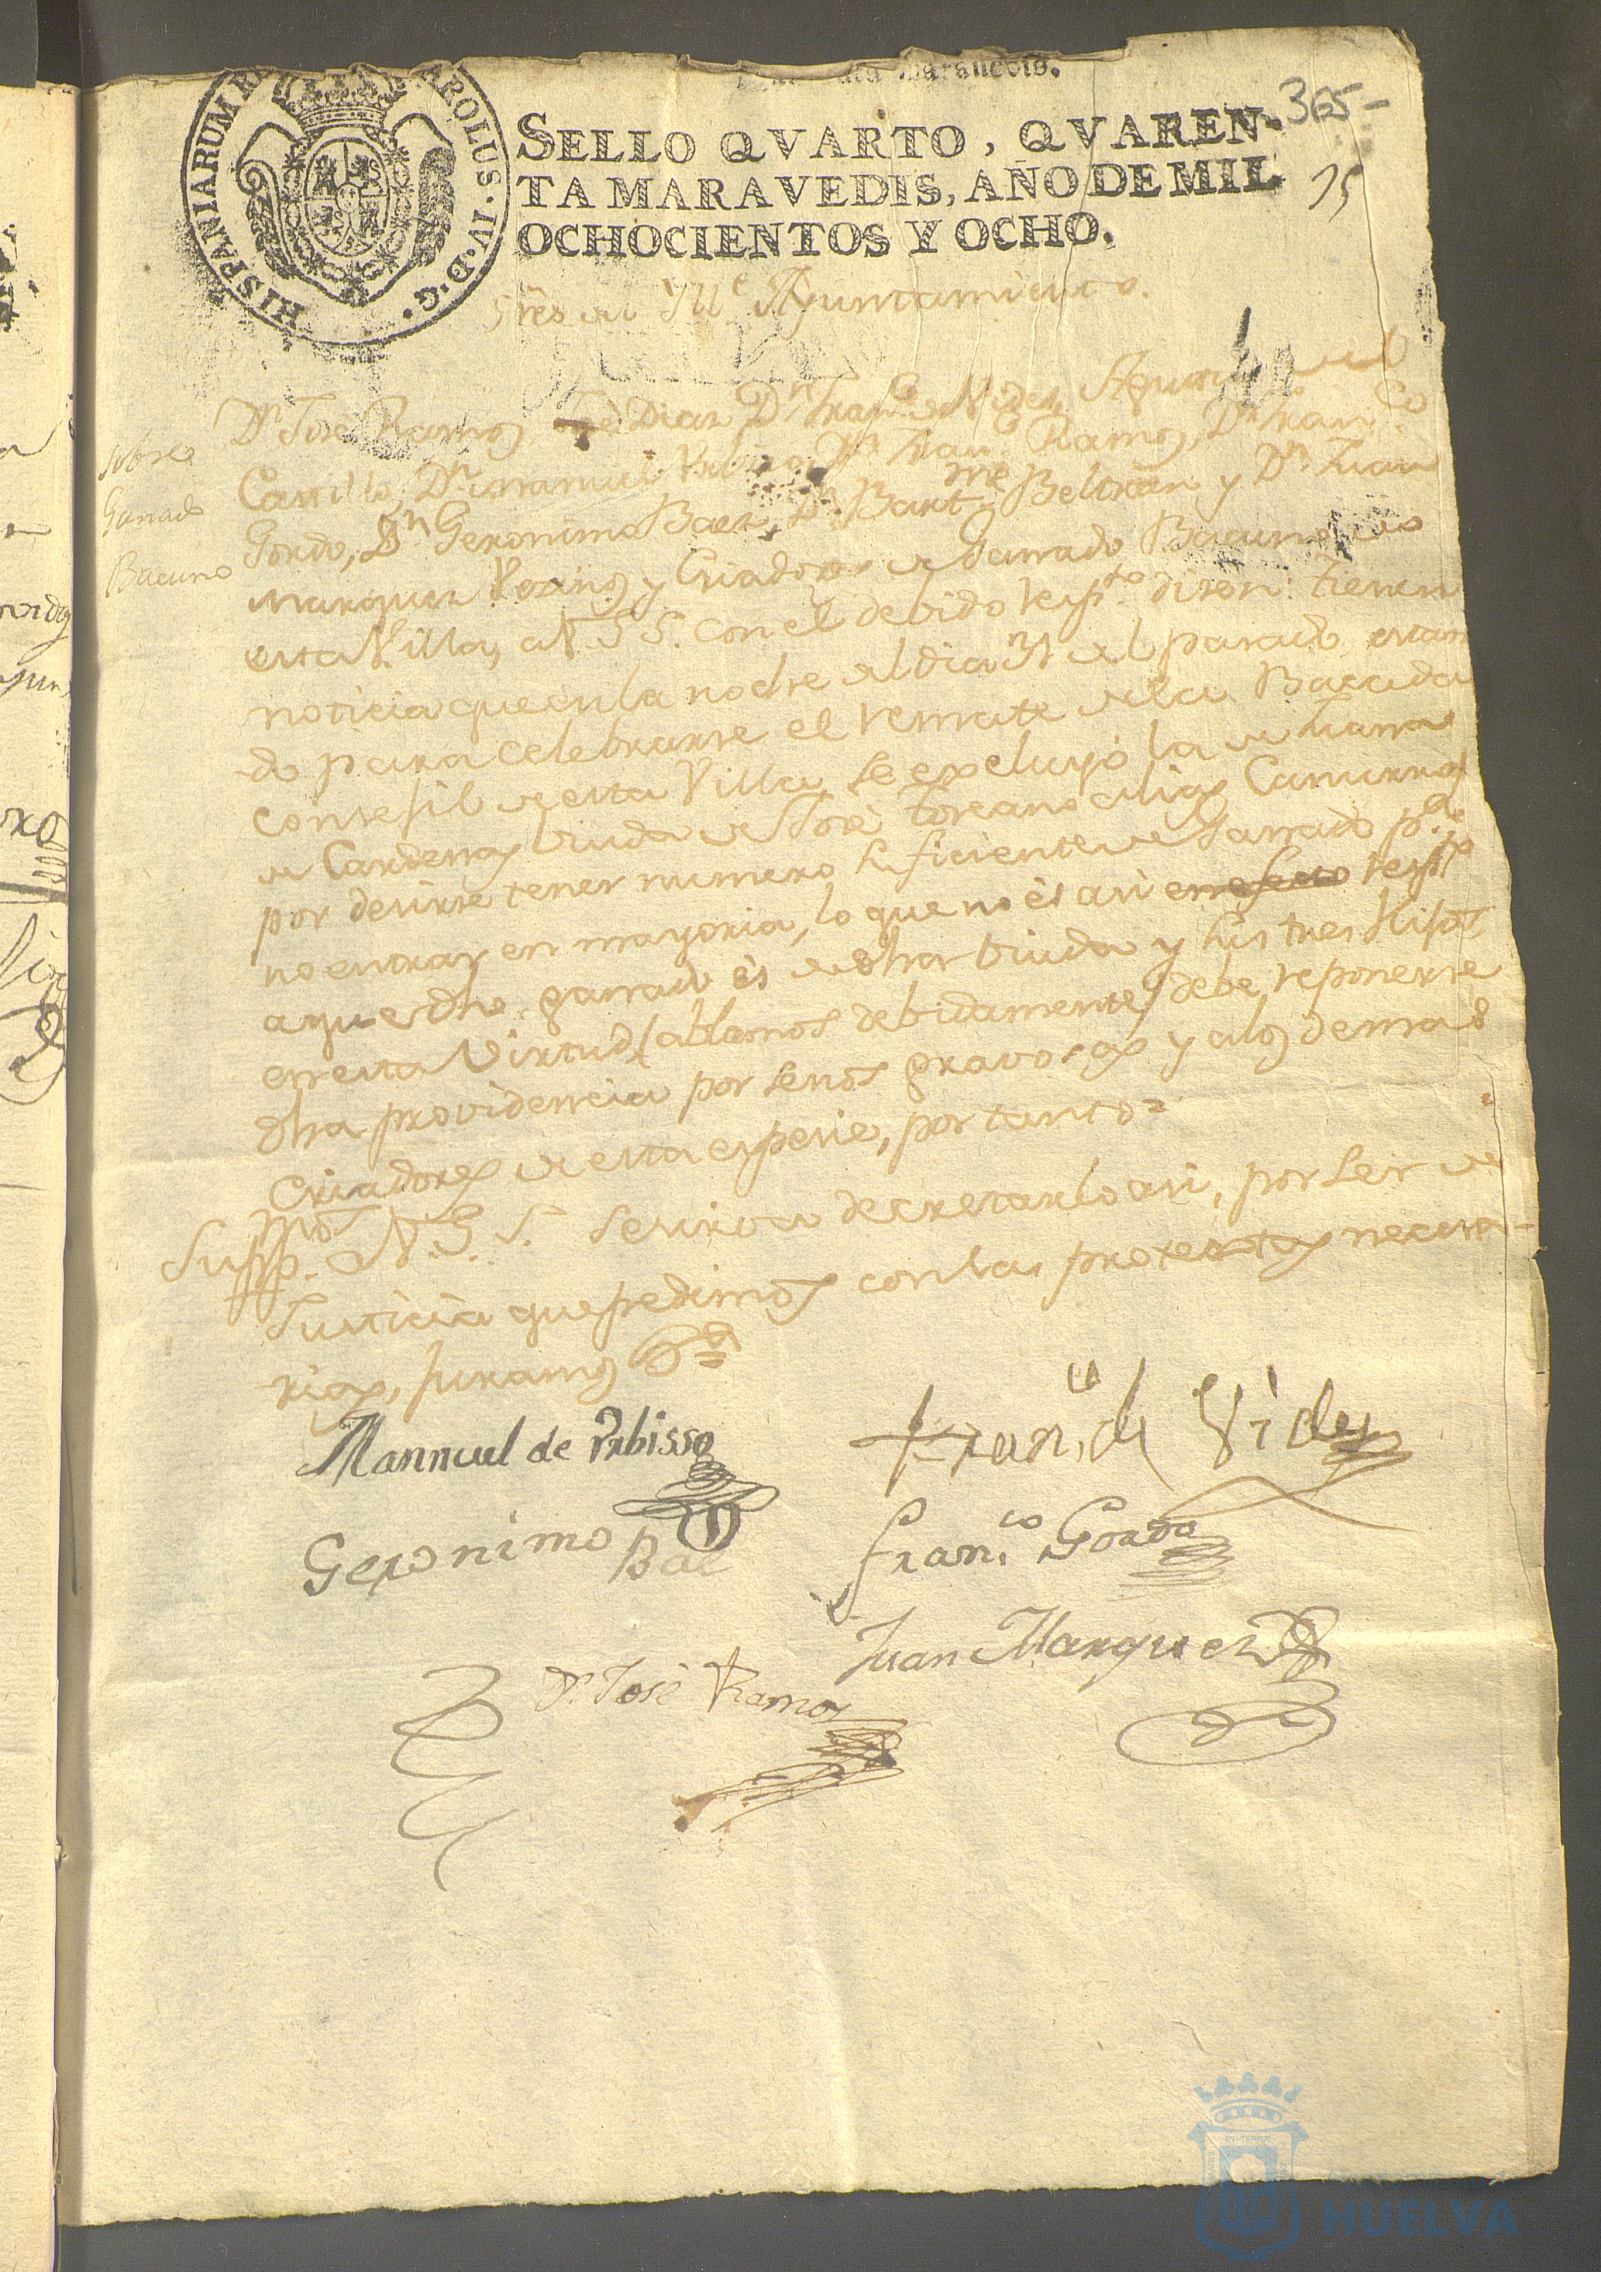 maravedis.
HISPANIARUM R
CAROLUS·IV·D·G·
SELLO QVARTO, QVAREN-
TA MARAVEDIS, AÑO DE MIL
OCHOCIENTOS Y OCHO.
365-
15
Sres del Ille Ayuntamiento.
sobre
Ganado
Bacuno
Dn José Ramos, José Diaz Dn Franco de Vides,
Carrillo, Dn Manuel Ramos, Dn Franco
Gordo, Dn Geronimo Baez, Dn Bartme Beltran y Dn Juan
Marquez Vezinos y Criadores de Ganado Bacuno de
esta Villa, a V.S.S. con el debido respto disen: tienen
noticia que en la noche del dia 31 del pasado estan
do para celebrarse el remate de la Bacada
consegil de esta Villa se excluyó la de Juana
de Cardenas Viuda de José Toscano alias Camurros
por desirse tener numero suficiente de Ganado pa
no entrar en mayoria, lo que no és asi en efecto respto
a que dho ganado és de dha Viuda y sus tres Hijos:
en esta Virtud (ablamos debidamente) debe reponerse
dha providencia por sernos gravosa y a los demas
Criadores de esta espesie, por tanto=
Suppmos V.S.S. se sirva decretarlo asi, por ser de
Justicia que pedimos con las protestas necesa-
rias, juramos &a=
Mannuel de Rebisso
Fran,co de Vides
Geronimo Bae
Fran,co Gordo
Juan Marquez
Dn José Ramos
HUELVA